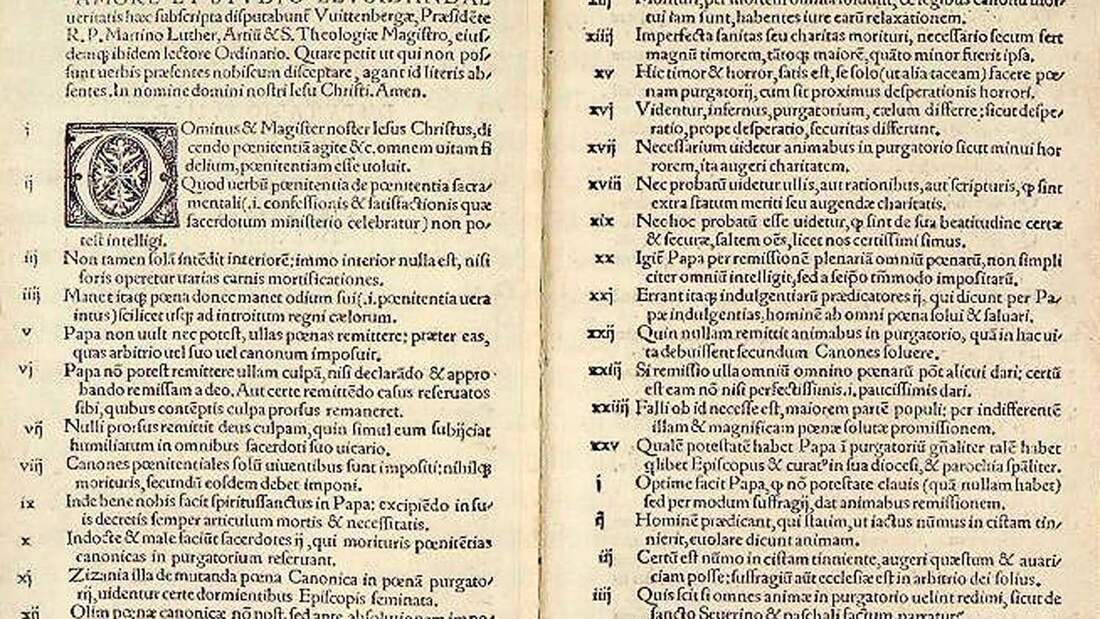 AMORE ET STVDIO ELVCIDANDAE
ueritatis hæc subscripta disputabunt̃ Vuittenbergæ, Præsidẽte
R. P. Martino Luther, Artiũ & S. Theologiæ Magistro, eius/
demq; ibidem lectore Ordinario. Quare petit ut qui non pos/
sunt uerbis præsentes nobiscum disceptare, agant id literis ab/
sentes. In nomine domini nostri Iesu Christi. Amen.
i DOminus & Magister noster Iesus Christus, di
cendo pœnitentiam agite &c. omnem uitam fi
delium, pœnitentiam esse uoluit.
ij Quod uerbũ pœnitentia de pœnitentia sacra/
mentali (.i. confessionis & satisfactionis quæ
sacerdotum ministerio celebratur) non po/
test intelligi.
iij Non tamen solã intẽdit interiorẽ; immo interior nulla est, nisi
foris operetur uarias carnis mortificationes.
iiij Manet itaq; pœna donec manet odium sui (.i. pœnitentia uera
intus) scilicet usq; ad introitum regni cælorum.
v Papa non uult nec potest, ullas pœnas remittere; præter eas,
quas arbitrio uel suo uel canonum imposuit.
vj Papa nõ potest remittere ullam culpã, nisi declarãdo & appro/
bando remissam a deo. Aut certe remittẽdo casus reseruatos
sibi, quibus contẽptis culpa prorsus remaneret.
vij Nulli prorsus remittit deus culpam, quin simul eum subijciat
humiliatum in omnibus sacerdoti suo uicario.
viij Canones pœnitentiales solũ uiuentibus sunt impositi; nihilq;
morituris, secundũ eosdem debet imponi.
ix Inde bene nobis facit spiritussanctus in Papa: excipiẽdo in su/
is decretis semper articulum mortis & necessitatis.
x Indocte & male faciũt sacerdotes ij, qui morituris pœnitẽtias
canonicas in purgatorium reseruant.
xj Zizania illa de mutanda pœna Canonica in pœnã purgato/
rij, uidentur certe dormientibus Episcopis seminata.
xij Olim pœnæ canonicæ nõ post, sed ante absolutionem impo/
xiij Morituri, per mortem omnia soluunt, & legibus canonũ mor/
tui iam sunt, habentes iure earũ relaxationem.
xiiij Imperfecta sanitas seu charitas morituri, necessario secum fert
magnũ timorem, tãtoq; maiorẽ, quãto minor fuerit ipsa.
xv Hic timor & horror, satis est, se solo (ut alia taceam) facere pœ/
nam purgatorij, cum sit proximus desperationis horrori.
xvj Videntur, infernus, purgatorium, cælum differre; sicut despe/
ratio, prope desperatio, securitas differunt.
xvij Necessarium uidetur animabus in purgatorio sicut minui hor
rorem, ita augeri charitatem.
xviij Nec probatũ uidetur ullis, aut rationibus, aut scripturis, ꝙ sint
extra statum meriti seu augendæ charitatis.
xix Nec hoc probatũ esse uidetur, ꝙ sint de sua beatitudine certæ
& securæ, saltem oẽs, licet nos certissimi simus.
xx Igit̃ Papa per remissionẽ plenariã omniũ pœnarũ, non simpli
citer omniũ intelligit, sed a seipõ tm̃modo impositarũ.
xxj Errant itaq; indulgentiarũ prædicatores ij, qui dicunt per Pa/
pæ indulgentias, hominẽ ab omni pœna solui & saluari.
xxij Quin nullam remittit animabus in purgatorio, quã in hac ui/
ta debuissent secundum Canones soluere.
xxiij Si remissio ulla omniũ omnino pœnarũ põt alicui dari; certũ
est eam nõ nisi perfectissimis .i. paucissimis dari.
xxiiij Falli ob id necesse est, maiorem partẽ populi; per indifferentẽ
illam & magnificam pœnæ solutæ promissionem.
xxv Qualẽ potestatẽ habet Papa ĩ purgatoriũ gñaliter talẽ habet
q̃libet Episcopus & curat⁹ in sua diocesi, & parochia sp̃aliter.
j Optime facit Papa, ꝙ nõ potestate clauis (quã nullam habet)
sed per modum suffragij, dat animabus remissionem.
ij Hominẽ prædicant, qui statim, ut iactus nũmus in cistam tin/
nierit, euolare dicunt animam.
iij Certũ est nũmo in cistam tinniente, augeri quæstum & auari/
ciam posse; suffragiũ aũt ecclesiæ est in arbitrio dei solius.
iiij Quis scit si omnes animæ in purgatorio uelint redimi, sicut de
sancto Seuerino & paschali factum narratur.